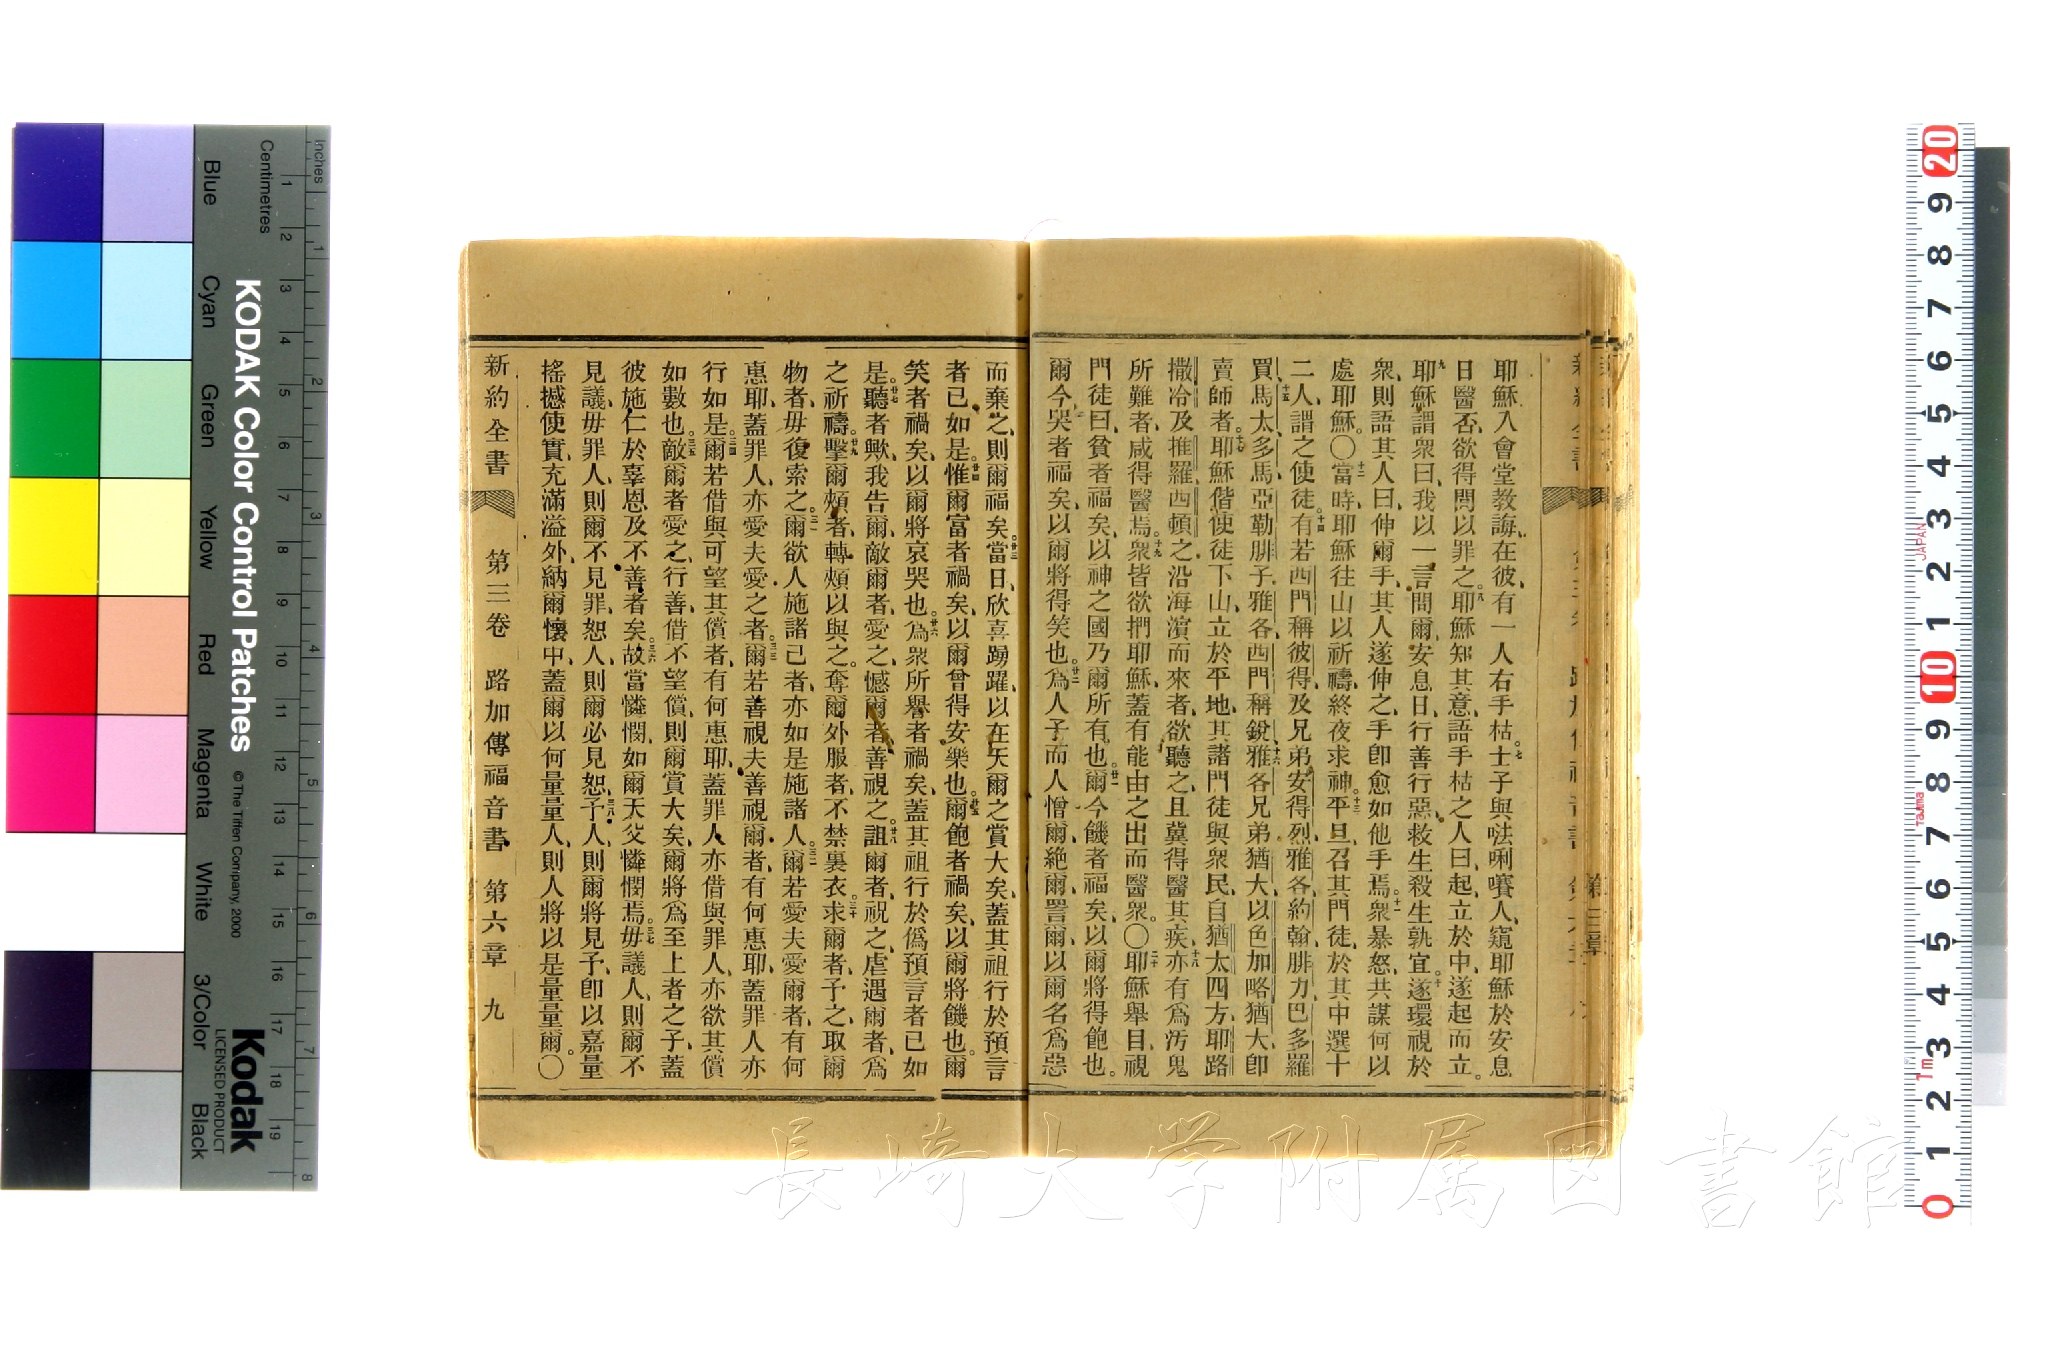 耶穌入會堂教誨、在彼有一人右手枯。七士子與𠵽唎㘔人、窺耶穌於安息
日醫否、欲得間以罪之。八耶穌知其意、語手枯之人曰、起、立於中、遂起而立。
九耶穌謂衆曰、我以一言問爾、安息日行善行惡、救生殺生、孰宜。十遂環視於
衆、則語其人曰、伸爾手、其人遂伸之、手卽愈如他手焉。十一衆暴怒、共謀何以
處耶穌。〇十二當時、耶穌往山以祈禱、終夜求神。十三平旦、召其門徒、於其中選十
二人、謂之使徒。十四有若西門稱彼得、及兄弟安得烈、雅各、約翰、腓力、巴多羅
買、十五馬太、多馬、亞勒腓子雅各、西門稱銳、十六雅各兄弟猶大、以色加略猶大、卽
賣師者。十七耶穌偕使徒下山、立於平地、其諸門徒與衆民、自猶太四方、耶路
撒冷、及推羅西頓之沿海濱而來者、欲聽之、且冀得醫其疾、十八亦有爲汚鬼
所難者、咸得醫焉。十九衆皆欲捫耶穌、蓋有能由之出而醫衆。〇二十耶穌舉目、視
門徒曰、貧者福矣、以神之國乃爾所有也。廿一爾今饑者福矣、以爾將得飽也。
爾今哭者福矣、以爾將得笑也。廿二爲人子而人憎爾、絕爾、詈爾、以爾名爲惡
而棄之、則爾福矣。廿三當日、欣喜踴躍、以在天爾之賞大矣、蓋其祖行於預言
者已如是。廿四惟爾富者禍矣、以爾曾得安樂也。廿五爾飽者禍矣、以爾將饑也。爾
笑者禍矣、以爾將哀哭也。廿六爲衆所譽者禍矣、蓋其祖行於僞預言者已如
是。廿七聽者歟、我告爾、敵爾者、愛之、憾爾者善視之。廿八詛爾者、祝之、虐遇爾者、爲
之祈禱。廿九擊爾頰者、轉頰以與之。奪爾外服者、不禁裏衣。三十求爾者、予之、取爾
物者、毋復索之。三一爾欲人施諸己者、亦如是施諸人。三二爾若愛夫愛爾者、有何
惠耶、蓋罪人亦愛夫愛之者。三三爾若善視夫善視爾者、有何惠耶、蓋罪人亦
行如是。三四爾若借與可望其償者、有何惠耶、蓋罪人亦借與罪人、亦欲其償
如數也。三五敵爾者愛之、行善、借不望償、則爾賞大矣、爾將爲至上者之子、蓋
彼施仁於辜恩及不善者矣。三六故當憐憫、如爾天父憐憫焉。三七毋議人、則爾不
見議、毋罪人、則爾不見罪、恕人、則爾必見恕。三八予人、則爾將見予、卽以嘉量
搖撼使實、充滿溢外、納爾懷中、蓋爾以何量量人、則人將以是量量爾。〇
新約全書 第三卷 路加傳福音書 第六章 九
長崎大学附属図書館
KODAK Color Control Patches
© The Tiffen Company, 2000
Kodak
LICENSED PRODUCT
Inches
Centimetres
Blue
Cyan
Green
Yellow
Red
Magenta
White
3/Color
Black
JAPAN
Tajima
1m